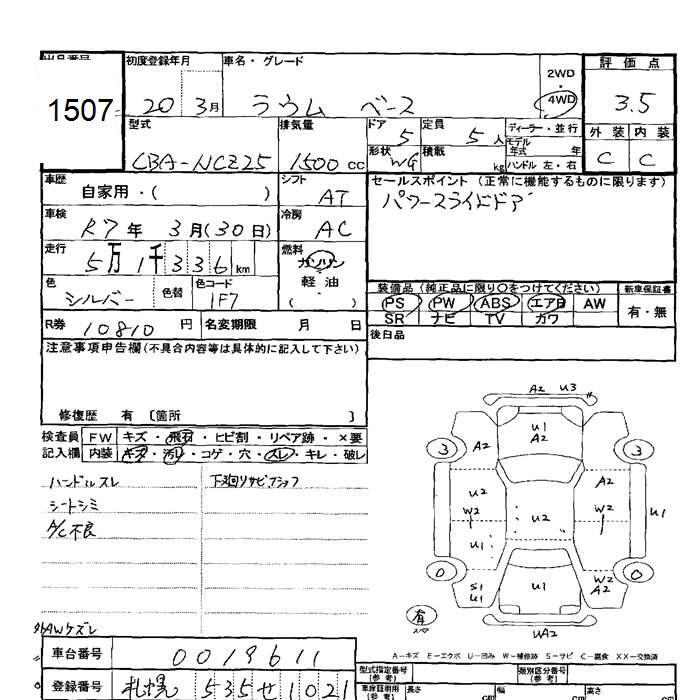 初度登録年月 車名・グレード 2WD 評価点
1507 20 3月 ラウム ベース 4WD 3.5
型式 排気量 ドア 5 定員 5人 ディーラー・並行 外装 内装
モデル年式 年
CBA-NCZ25 1500cc 形状 WG 積載 kg ハンドル 左・右 C C
車歴 シフト セールスポイント (正常に機能するものに限ります)
自家用・( ) AT パワースライドドア
車検 冷房
R7年 3月(30日) AC
走行 燃料
5万1千336km ガソリン
色 色替 色コード 軽油
シルバー 1F7 ( )
装備品 (純正品に限り○をつけてください) 新車保証書
PS PW ABS エアB AW 有・無
SR ナビ TV カワ
R券 10810円 名変期限 月 日
後日品
注意事項申告欄(不具合内容等は具体的に記入して下さい)
修復歴 有 〔箇所 〕
検査員 FW キズ・飛石・ヒビ割・リペア跡・×要
記入欄 内装 キズ・汚レ・コゲ・穴・スレ・キレ・破レ
ハンドルスレ 下廻リサビアリ
シートシミ
A/C不良
A2 U3
U1
A2
3 A2 3
A2
U2 W2
U2 W2 U1
U1
0 0
S1 U1 U1 W2 A2
有 スペア
UA2
A-キズ E-エクボ U-凹み W-補修跡 S-サビ C-腐食 XX-交換済
AWケズレ
車台番号 0019611
登録番号 札幌 535 せ 1021
型式指定番号 (参考) 類別区分番号 (参考)
車庫証明用 (参考) 長さ cm 幅 cm 高さ